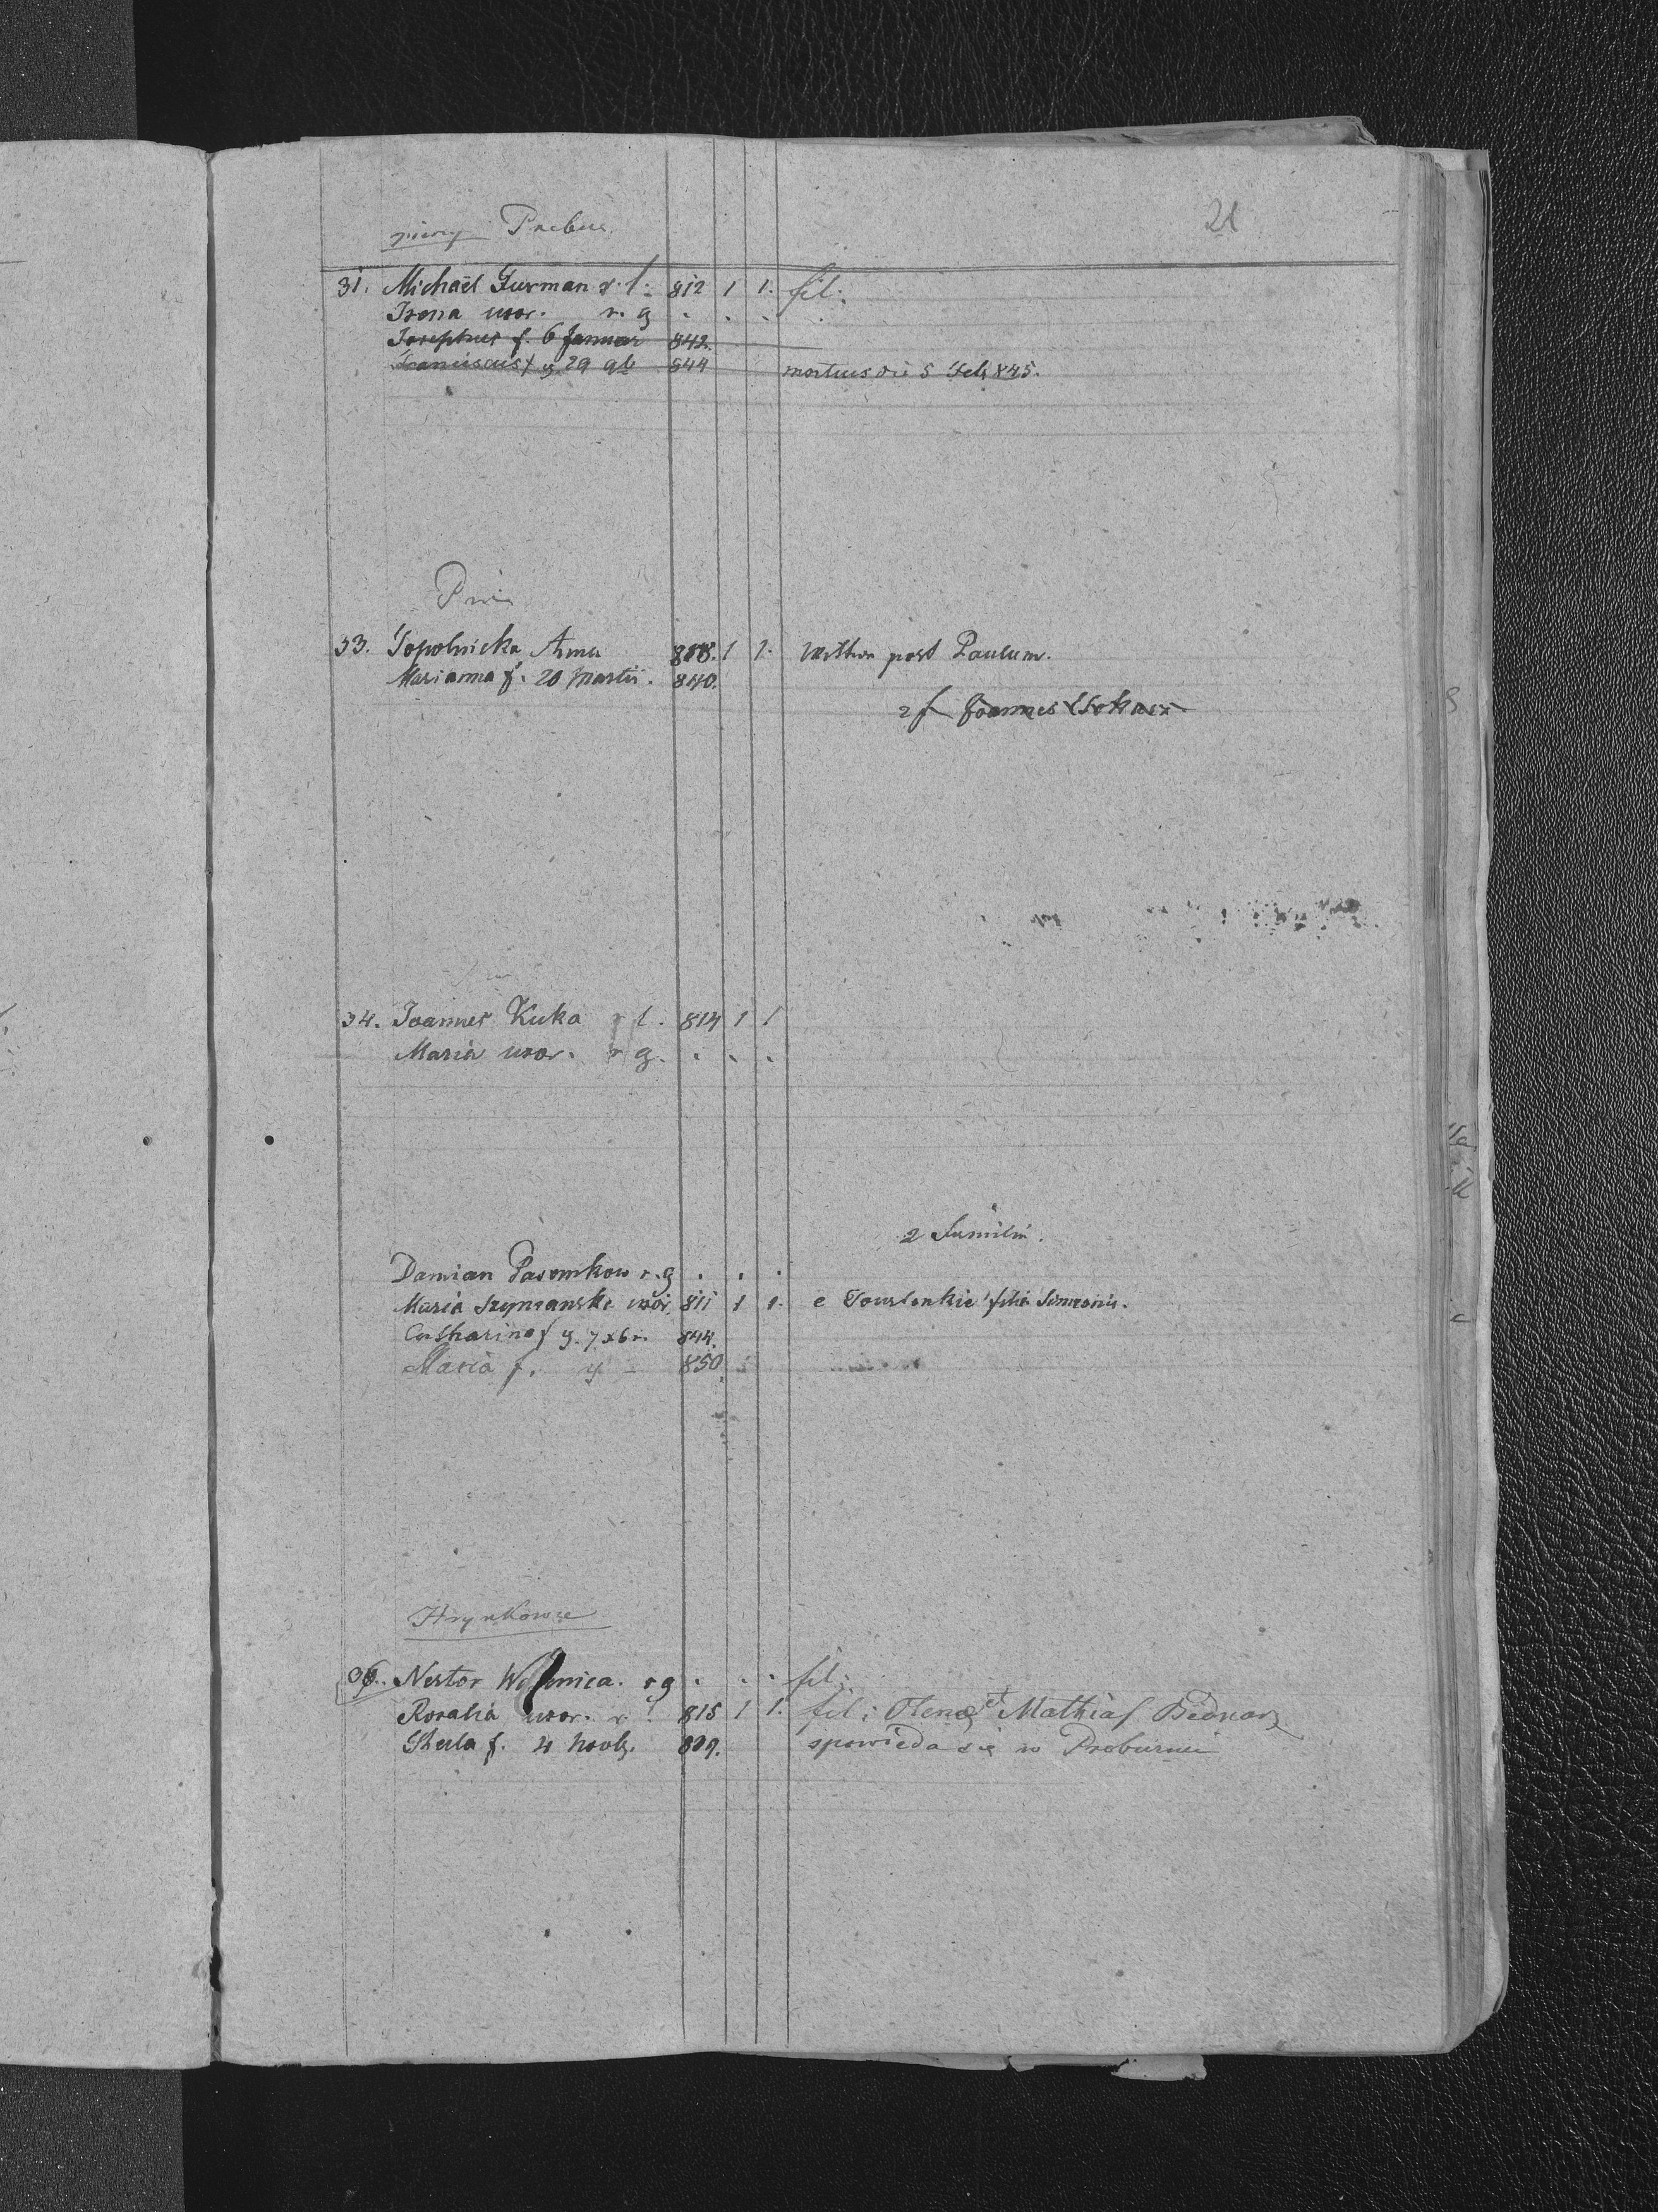 21
31. Michaël Gurman r. l. 812 1 1. fil.
Irena uxor. r. g . . .
Josephus f. 6 Januar 842.
Franciscus f g 29 9b 844 mortuus die 5 Feb 845.
33. Topolnicka Anna 808. 1 1. vidua post Paulum.
Marianna f. 20 Martii. 840.
2 f Joannes
34. Joannes Kuka r l. 814 1 1
Maria uxor. r g. . . .
2 Familia.
Damian Pasemkow r. g . . .
Maria Szymanska uxor. 811 1 1. e filia Simeonis.
Catharina f g. 7 xbr. 844.
Maria f. g - 850.
Hrynkowce
36. Nestor r g . . . fil.
Rosalia uxor. r l 815 1 1. fil: Olenae et Mathias Bednarz
Thecla f. 4 Novb. 839. spowiada się w Probużnie